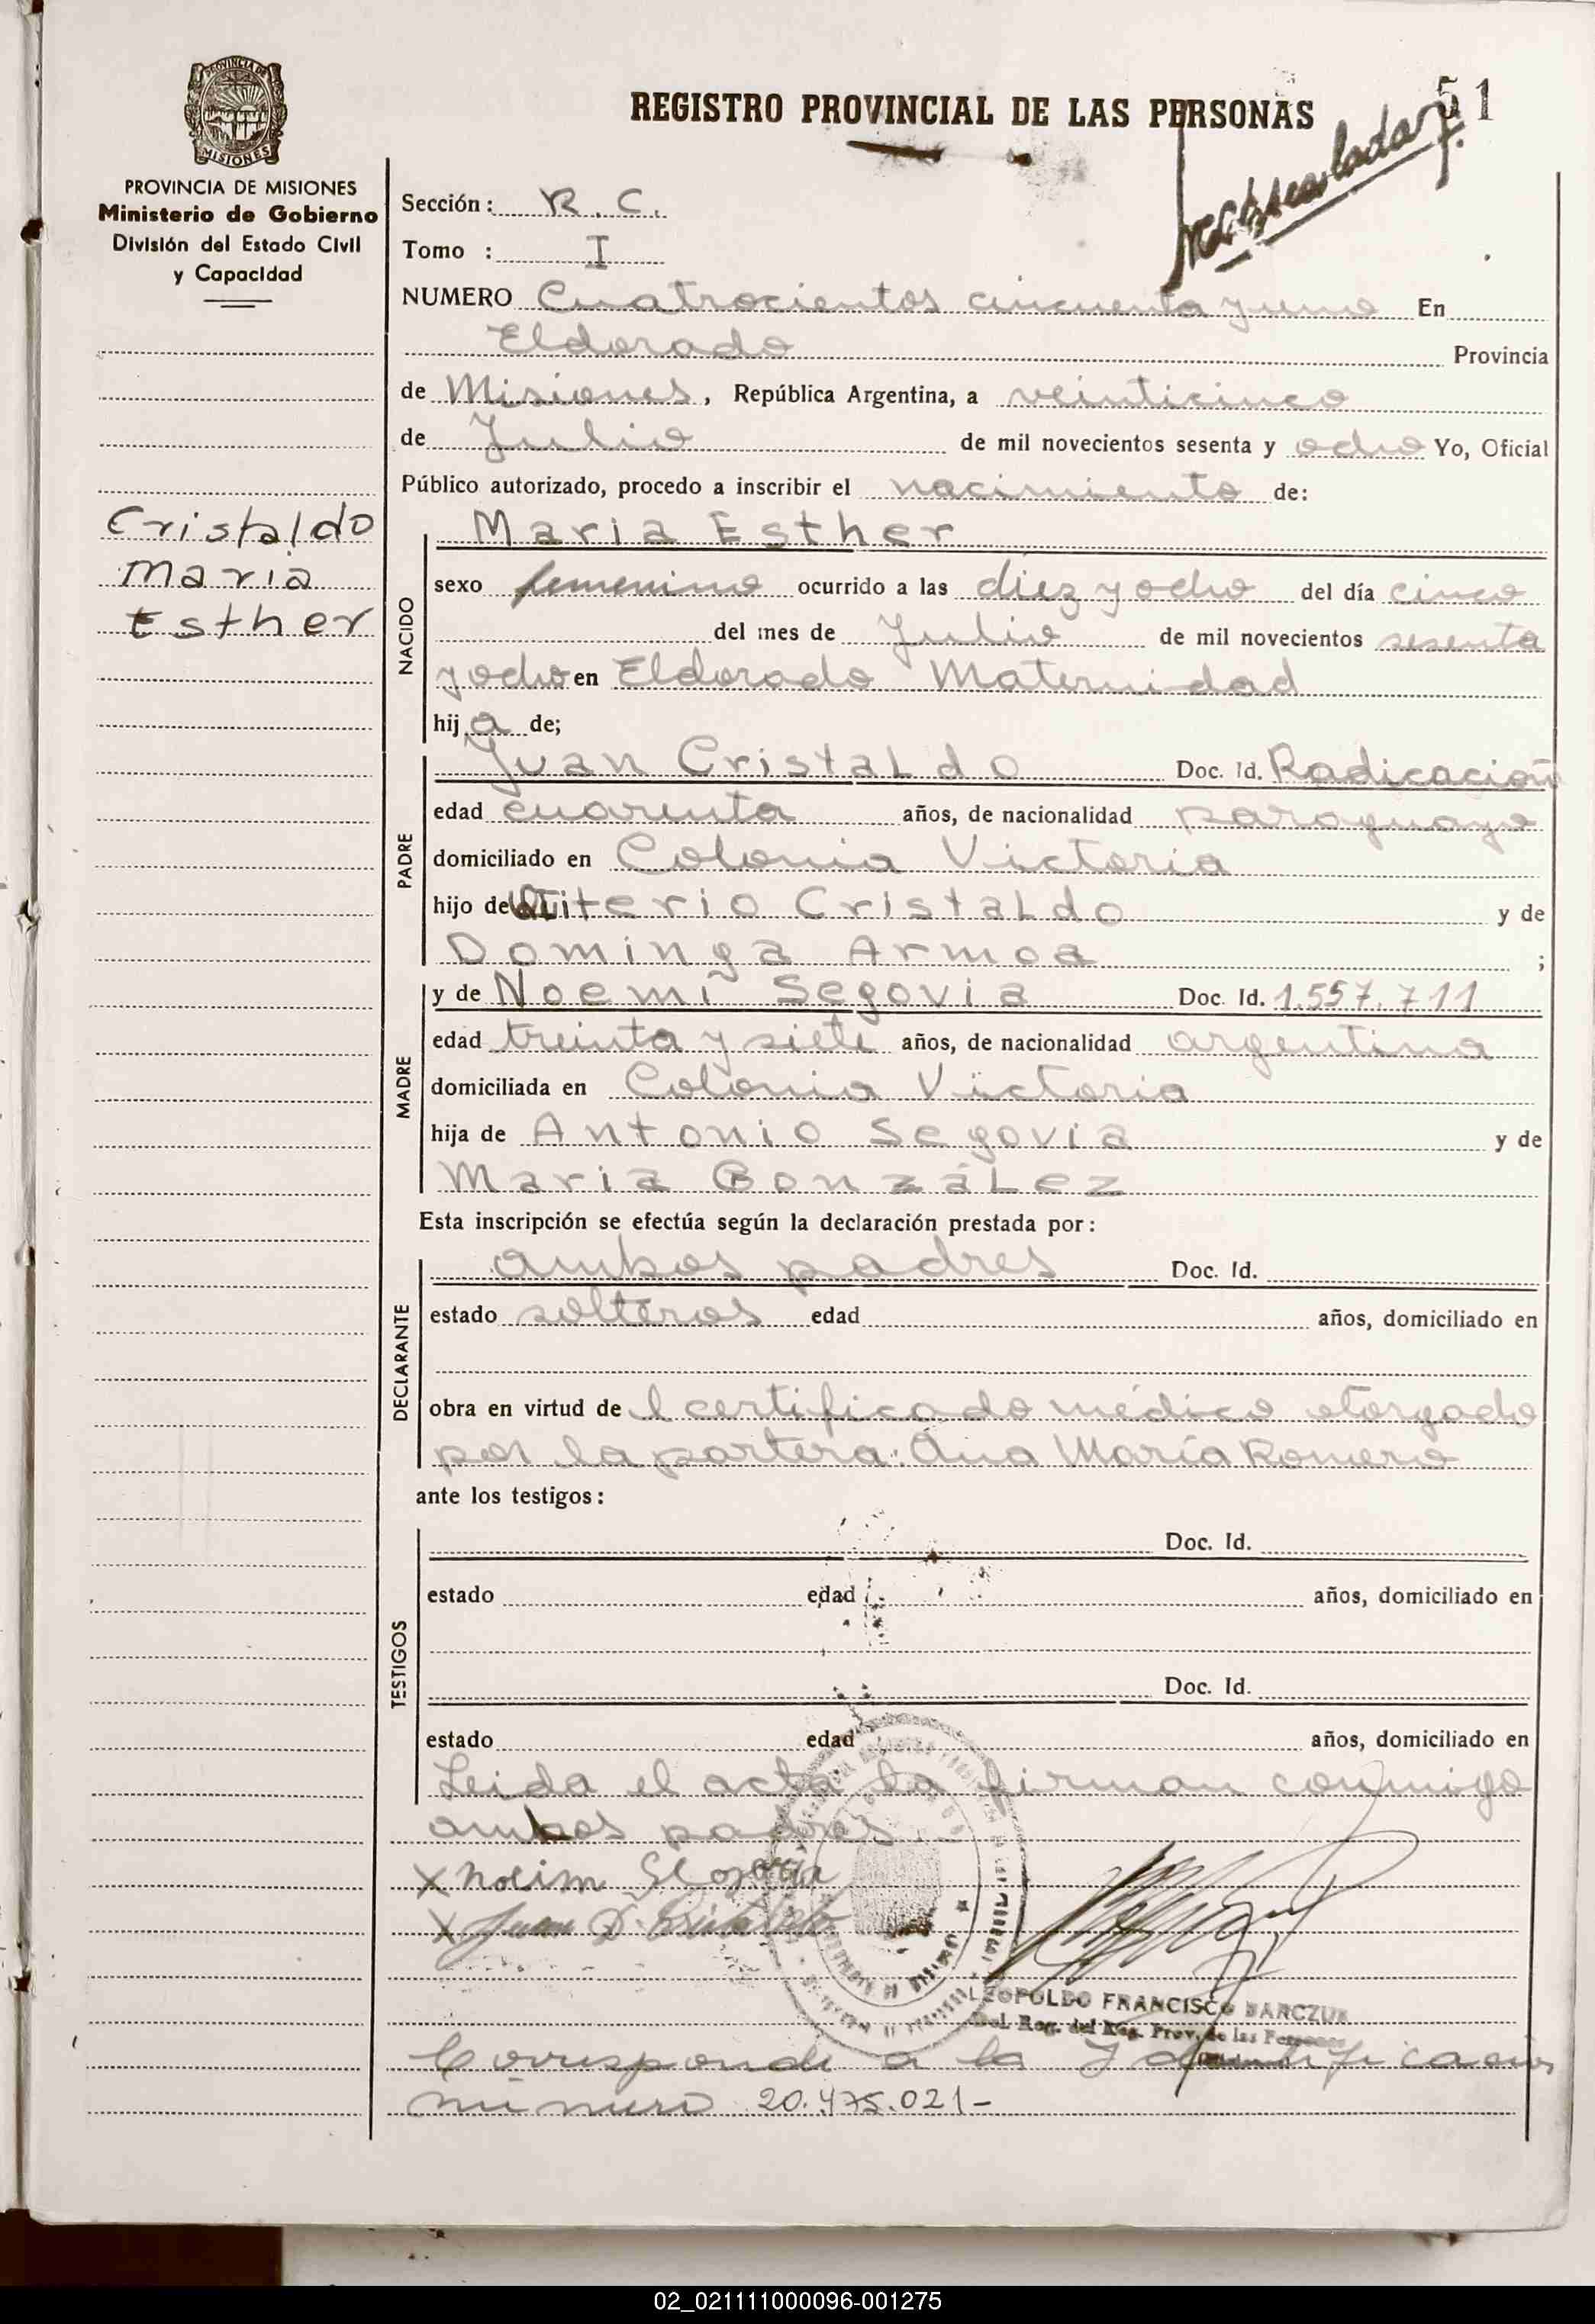 51
REGISTRO PROVINCIAL DE LAS PERSONAS
PROVINCIA DE
MISIONES
PROVINCIA DE MISIONES
Ministerio de Gobierno
División del Estado Civil
y Capacidad
Cristaldo
Maria
Esther
Sección: R. C.
Tomo : I
NUMERO Cuatrocientos cincuenta y uno En
Eldorado Provincia
de Misiones, República Argentina, a veinticinco
de Julio de mil novecientos sesenta y ocho Yo, Oficial
Público autorizado, procedo a inscribir el nacimiento de:
NACIDO
Maria Esther
sexo femenino ocurrido a las diez y ocho del día cinco
del mes de Julio de mil novecientos sesenta
y ocho en Eldorado Maternidad
hija de;
PADRE
Juan Cristaldo Doc. Id. Radicación
edad cuarenta años, de nacionalidad paraguayo
domiciliado en Colonia Victoria
hijo de Cristaldo y de
Dominga Armoa ;
MADRE
y de Noemí Segovia Doc. Id. 1.557.711
edad treinta y siete años, de nacionalidad argentina
domiciliada en Colonia Victoria
hija de Antonio Segovia y de
Maria González
Esta inscripción se efectúa según la declaración prestada por:
DECLARANTE
ambos padres Doc. Id.
estado solteros edad años, domiciliado en
obra en virtud del certificado médico otorgado
por la partera: Ana María Romero
ante los testigos:
TESTIGOS
Doc. Id.
estado edad años, domiciliado en
Doc. Id.
estado edad años, domiciliado en
Leida el acta la firman conmigo
ambos padres.
X
X Juan D. Cristaldo
LEOPOLDO FRANCISCO BARCZUK
Del. Reg. del Reg. Prov. de las Personas
Corresponde a la Identificación
número 20.475.021-
02_021111000096-001275